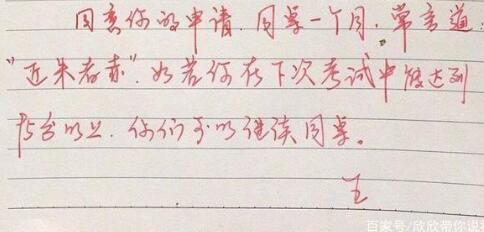 同意你的申请.同桌一个月.常言道:
“近朱者赤”.如若你在下次考试中能达到
75分以上.你们可以继续同桌。
王
百家号/欣欣带你说